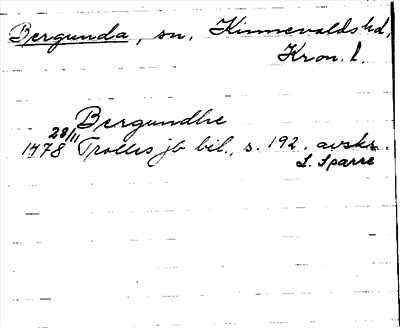 Bergunda, sn, Kinnevalds hd,
Kron. l.
Bergundhe
28/11
1478 Trolles jb bil., s. 192. avskr.
L. Sparre